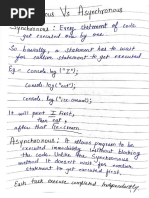 Synchronous Vs Asynchronous
Synchronous : Every statement of code
get executed one by one.
So basically, a statement has to wait
for earlier statement to get executed.
Eg - console.log("I");
console.log("eat");
console.log("ice-cream");
It will print I first,
then eat,
after that ice-cream
Asynchronous : It allows program to be
executed immediately without blocking
the code. Unlike the Synchronous
method it doesn't wait for earlier
statement to get executed first.
Each task execute completed Independently.